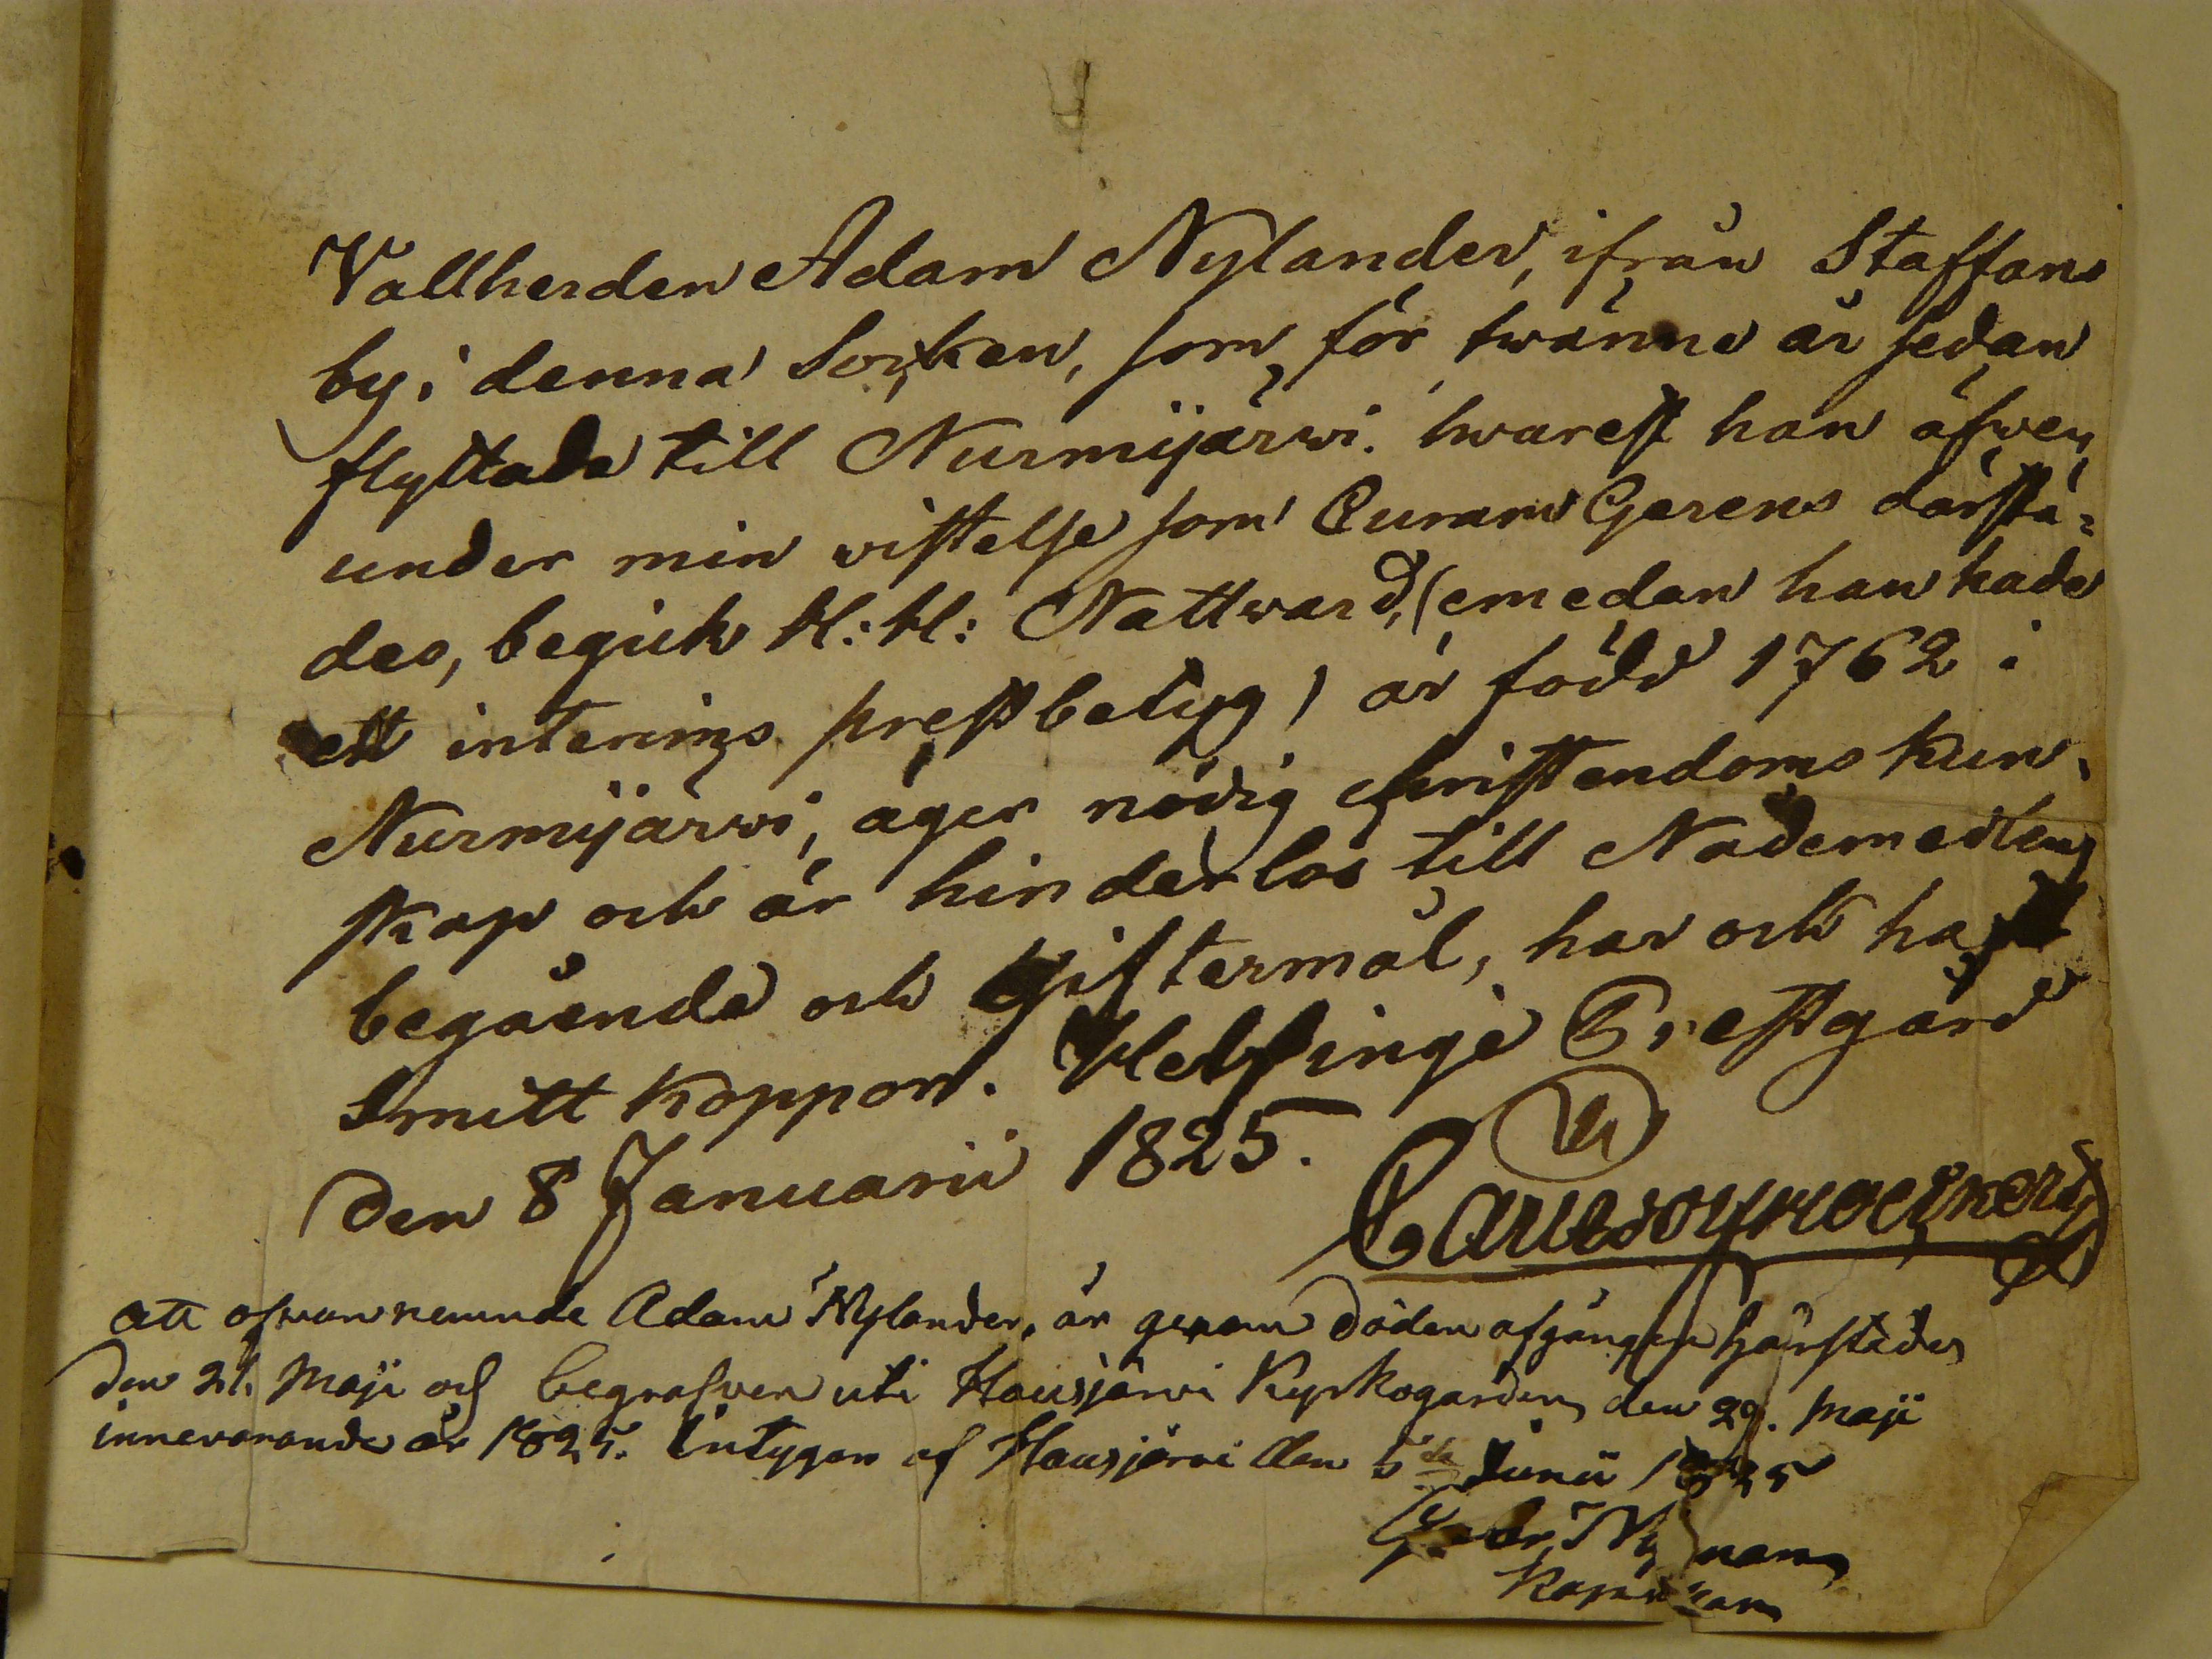 Vallherden Adam Nylander, ifrån Staffans
by i denna Socken, som för twänne år sedan
flyttade till Nurmijärwi. hwarest han äfwen
under min wistelse som Curam Gerens därstä=
des, begick H: H: Nattward, (emedan han hade
ett interims prestbetyg) är född 1762 i
Nurmijärwi, äger nödig christendoms kun¬
skap och är hinderlös till Nademedlens
begående och Giftermål, har och haft
Smitt koppor. Helsinge Prestgård
den 8 Januarii 1825.
att ofwannemnde Adam Nylander, är genom döden afgången härstädes
den 21. Maji och begrafwen uti Hausjärvi Kyrkogården den 29. Maji
innevarande år 1825. Intygar af Hausjärvi den 5te Junii 1825
Nyman
Kapellan